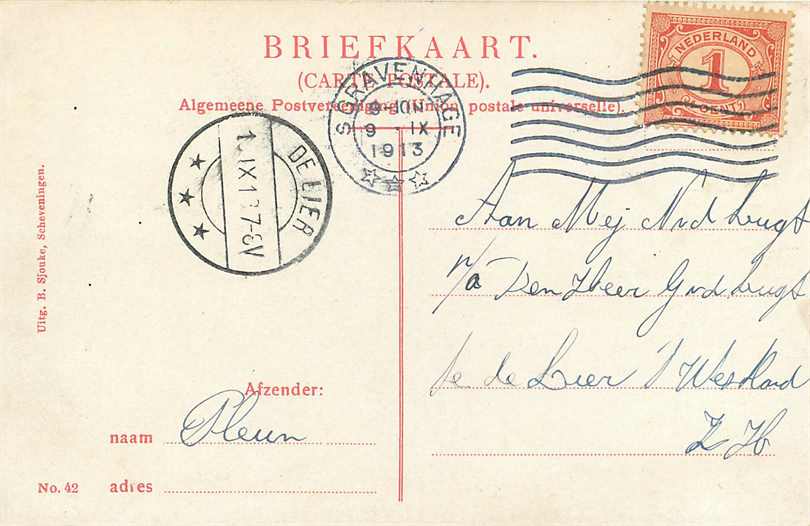 BRIEFKAART.
(CARTE POSTALE).
Algemeene Postvereeniging (Union postale universelle).
NEDERLAND
1
'S GRAVENHAGE
9 IX
1913
DE LIER
IX 1 7-8V
Aan Mej N v d Lugt
p/a Den Heer G v d Lugt
te de Lier 't Westland
Z H
Uitg. B. Sjouke, Scheveningen.
Afzender:
naam Pleun
No. 42 adres